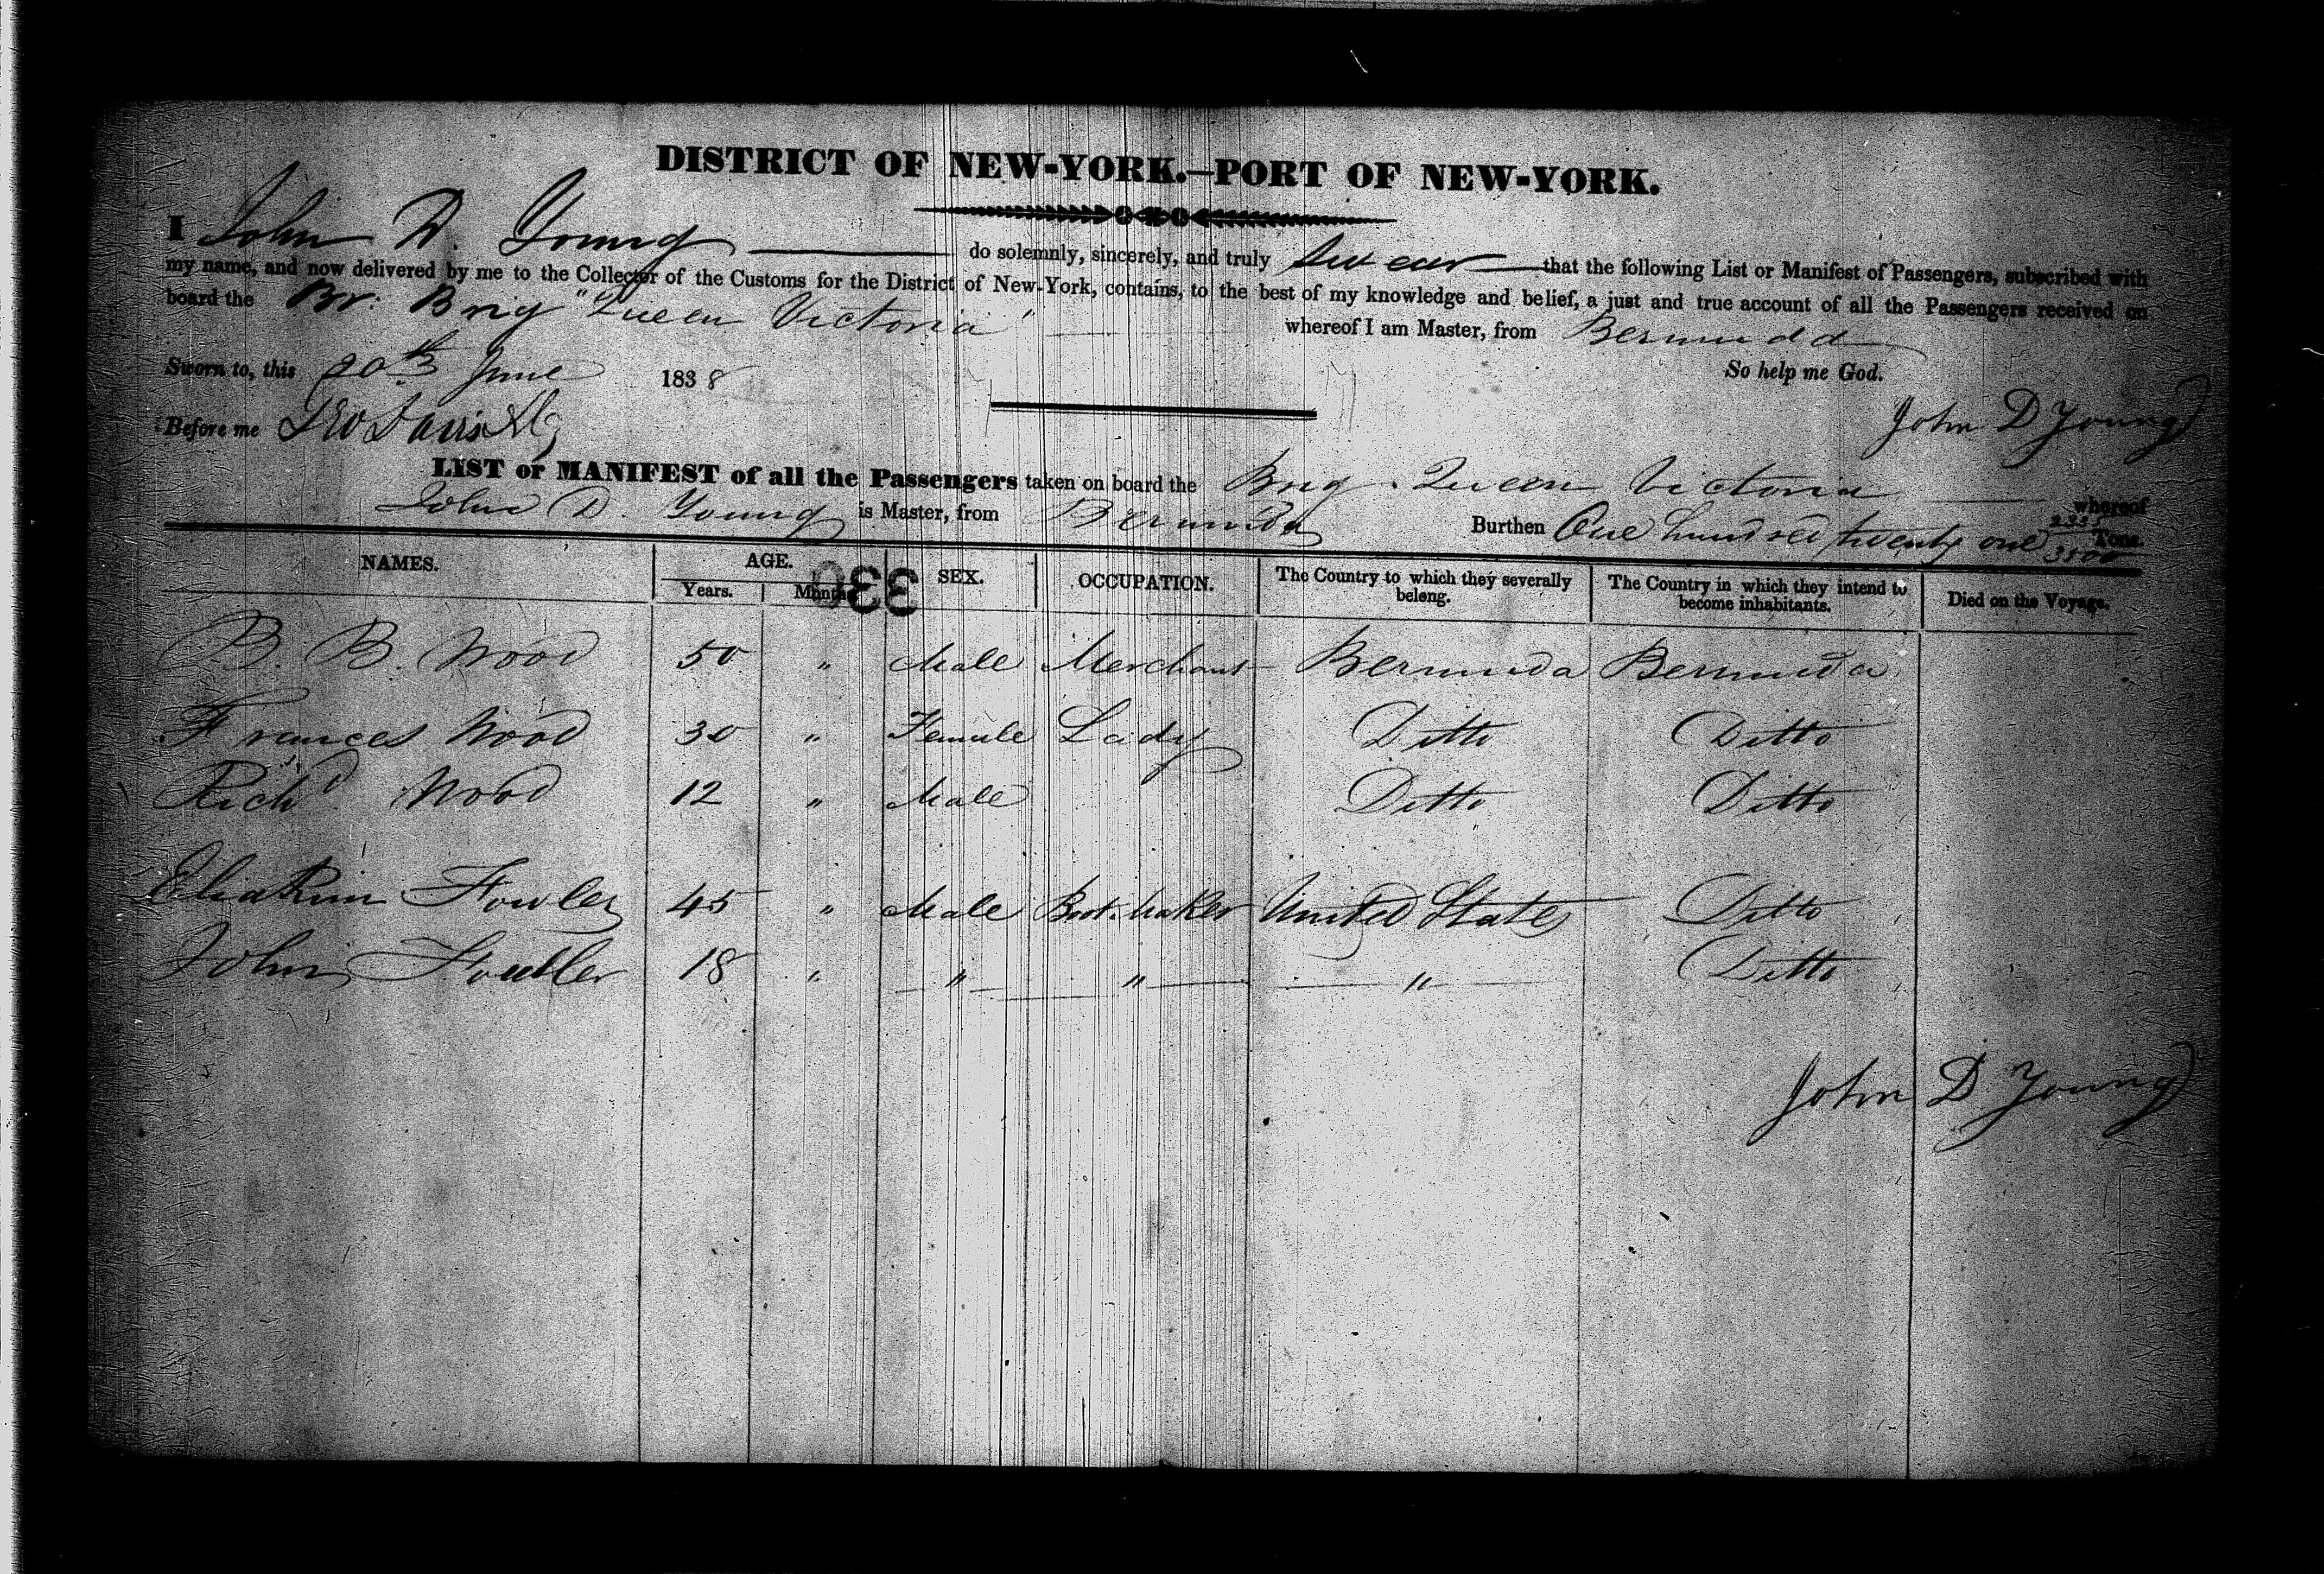 DISTRICT OF NEW-YORK.—PORT OF NEW-YORK.
I John D. Young do solemnly, sincerely, and truly swear that the following List or Manifest of Passengers, subscribed with
my name, and now delivered by me to the Collector of the Customs for the District of New-York, contains, to the best of my knowledge and belief, a just and true account of all the Passengers received on
board the Br. Brig "Queen Victoria" whereof I am Master, from Bermuda
Sworn to, this 20th June 1838 So help me God.
Before me John D Young
LIST or MANIFEST of all the Passengers taken on board the Brig Queen Victoria whereof
John D. Young is Master, from Bermuda Burthen One hundred twenty one Tons.
NAMES. AGE. SEX. OCCUPATION. The Country to which they severally belong. The Country in which they intend to become inhabitants. Died on the Voyage.
Years. Months
330
B. B. Wood 50 " Male Merchant Bermuda Bermuda
Frances Wood 30 " Female Lady Ditto Ditto
Richd Wood 12 " Male Ditto Ditto
Eliakim Fowler 45 " Male Boot Maker United States Ditto
John Fowller 18 " " " " Ditto
John D Young